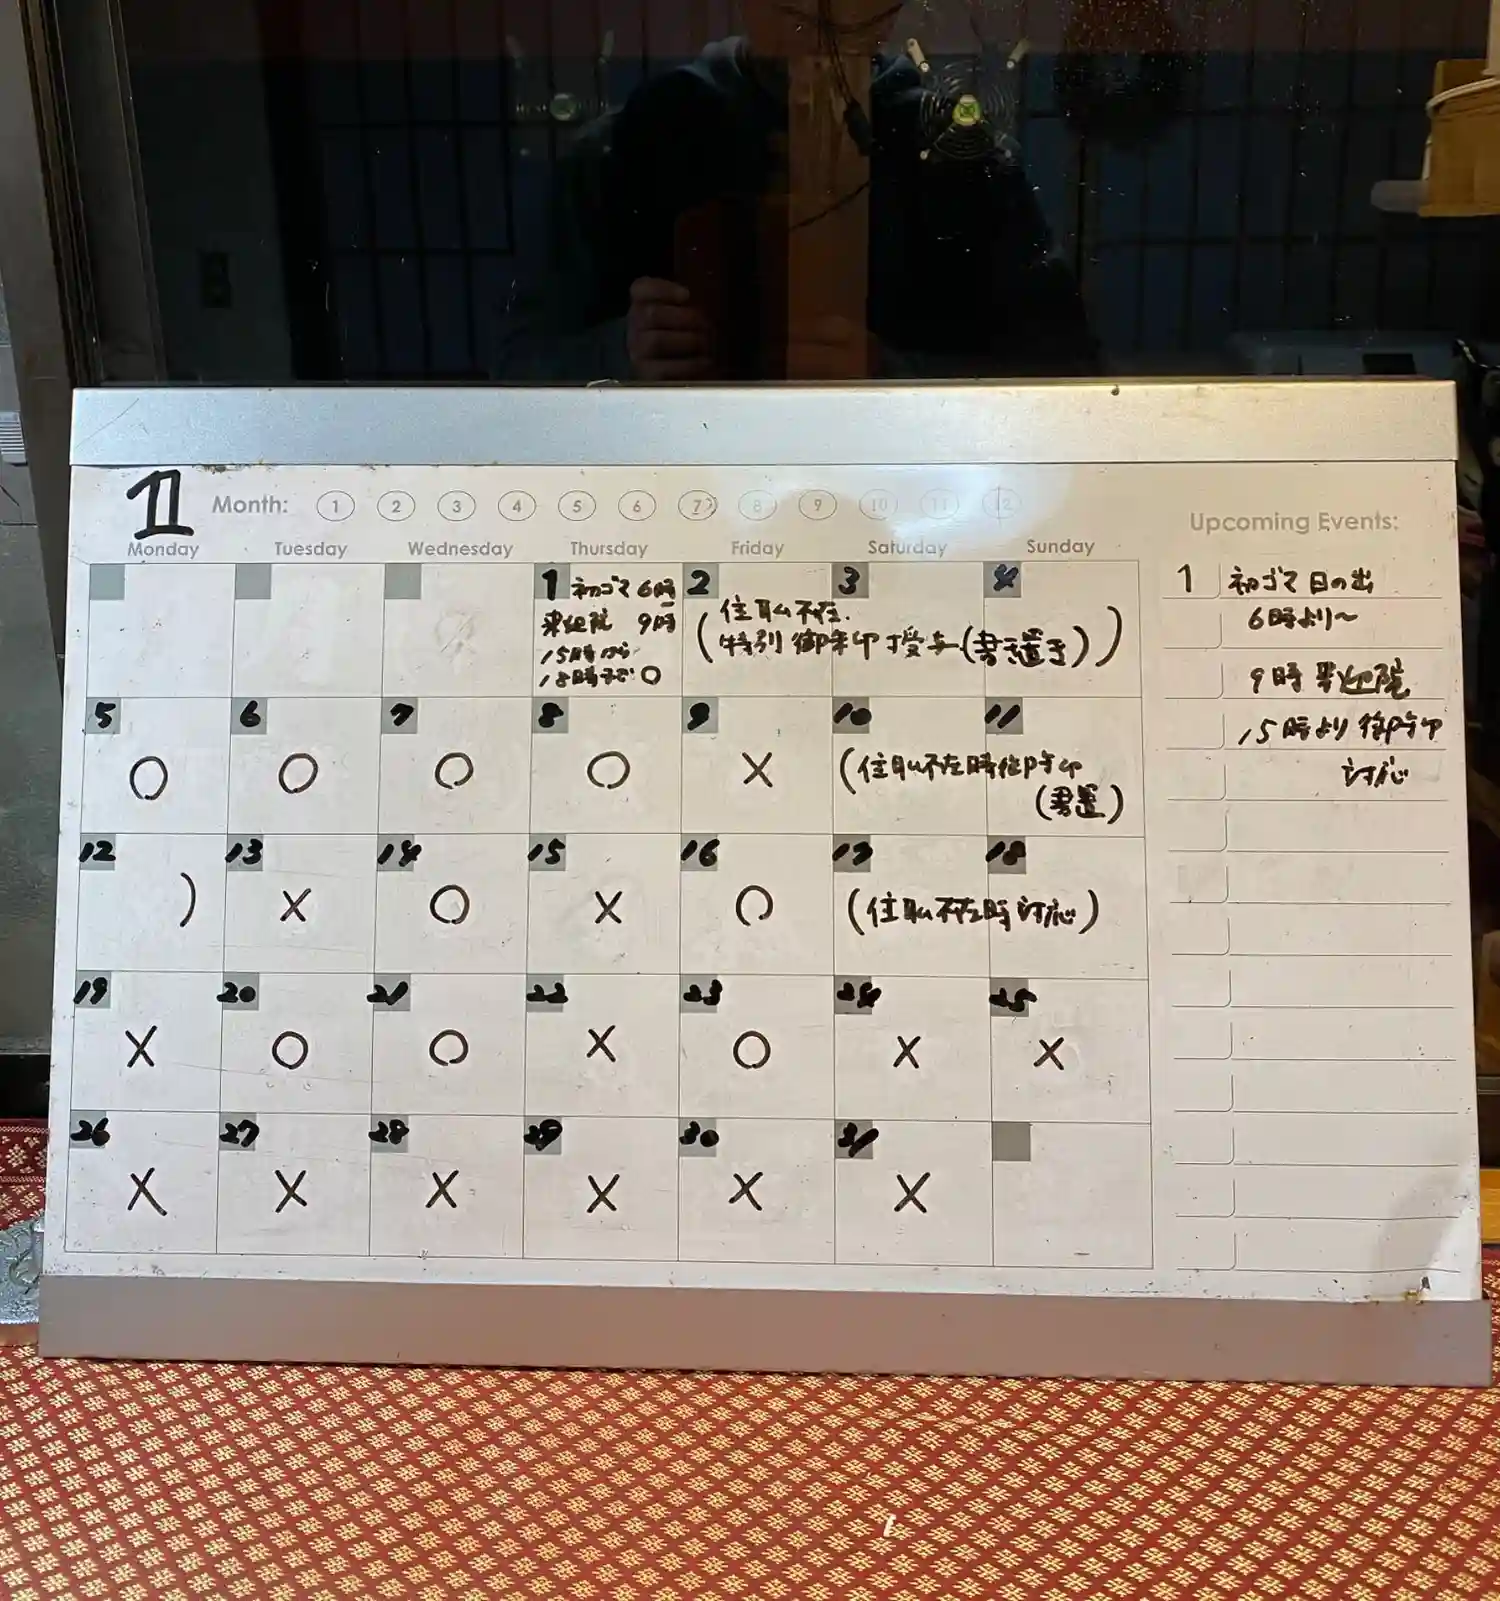 1
Month: 1 2 3 4 5 6 7 8 9 10 11 12
Upcoming Events:
Monday Tuesday Wednesday Thursday Friday Saturday Sunday
1 初ゴマ 6時
来迎院 9時
15時から
18時まで ○
2 3 4
(住職不在.
特別御朱印授与(書置き))
5 6 7 8 9 10 11
○ ○ ○ ○ ×
(住職不在時御朱印
(書置)
12 13 14 15 16 17 18
) × ○ × ○ (住職不在時対応)
19 20 21 22 23 24 25
× ○ ○ × ○ × ×
26 27 28 29 30 31
× × × × × ×
1 初ゴマ 日の出
6時より〜
9時 来迎院
15時より 御朱印
対応